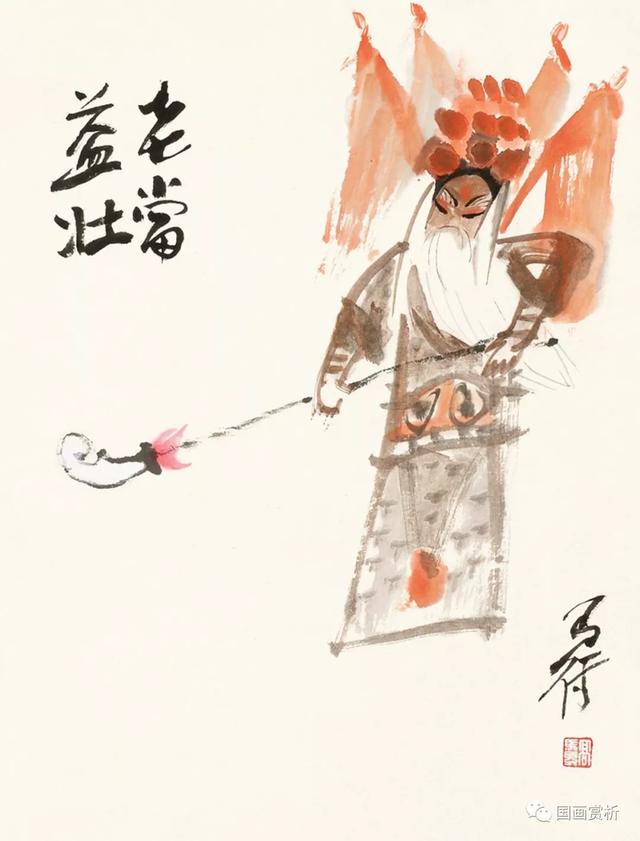 老當
益壮
马得
国画赏析